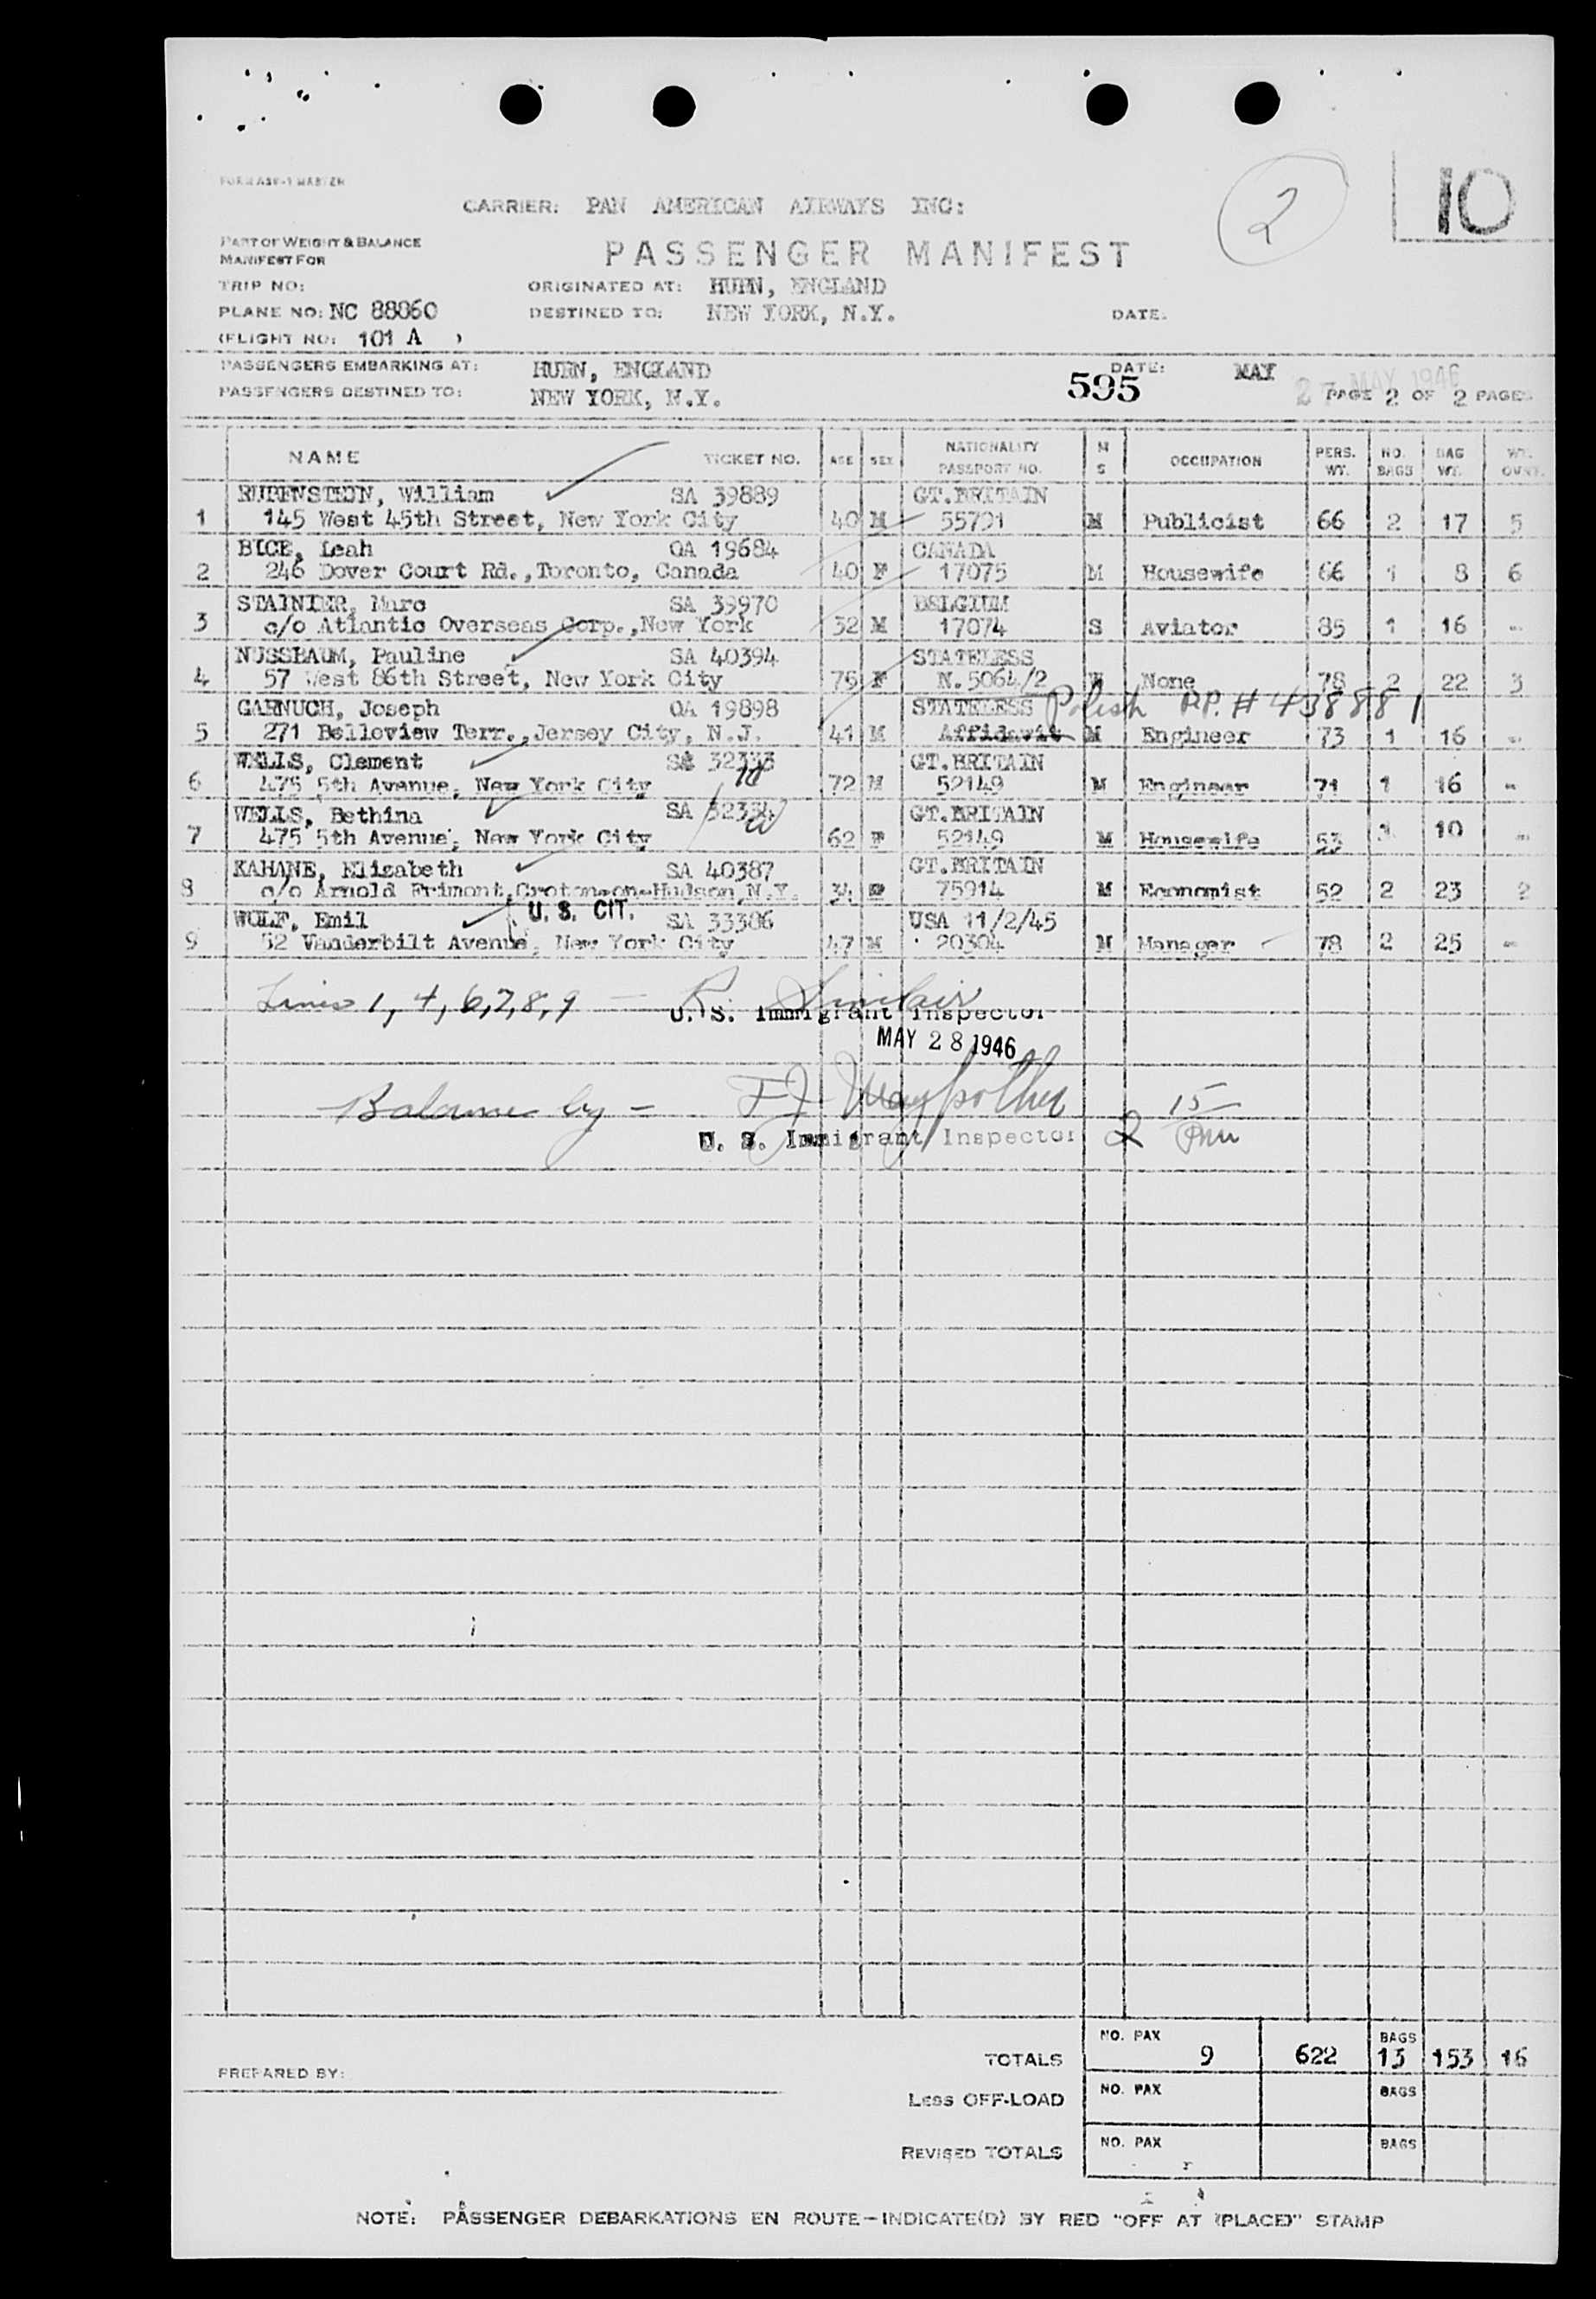 FORM ASF-1 MASTER
2
10
CARRIER: PAN AMERICAN AIRWAYS INC:
PART OF WEIGHT & BALANCE
MANIFEST FOR
PASSENGER MANIFEST
TRIP NO: ORIGINATED AT: HURN, ENGLAND
PLANE NO: NC 88860 DESTINED TO: NEW YORK, N.Y. DATE:
(FLIGHT NO: 101 A )
PASSENGERS EMBARKING AT: HURN, ENGLAND DATE: MAY
595 27 MAY 1946
PASSENGERS DESTINED TO: NEW YORK, N.Y. PAGE 2 OF 2 PAGES
NAME TICKET NO. AGE SEX NATIONALITY PASSPORT NO. M S OCCUPATION PERS. WT. NO. BAGS BAG WT. WT. OVWT.
RUBENSTEIN, William SA 39889 GT.BRITAIN
1 145 West 45th Street, New York City 40 M 55701 M Publicist 66 2 17 5
BICE, Leah OA 19684 CANADA
2 246 Dover Court Rd.,Toronto, Canada 40 F 17075 M Housewife 66 1 8 6
STAINIER, Marc SA 39970 BELGIUM
3 c/o Atlantic Overseas Corp.,New York 32 M 17074 S Aviator 85 1 16 -
NUSSBAUM, Pauline SA 40394 STATELESS
4 57 West 86th Street, New York City 75 F N.5064/2 None 78 2 22 3
GARNUCH, Joseph OA 19898 STATELESS Polish P.P. # 438881
5 271 Belleview Terr.,Jersey City, N.J. 41 M Affidavit M Engineer 73 1 16 -
WELLS, Clement SA 32333 GT.BRITAIN
6 475 5th Avenue, New York City 72 M 52149 M Engineer 71 1 16 -
WELLS, Bethina SA 32334 GT.BRITAIN
7 475 5th Avenue, New York City 62 F 52149 M Housewife 53 1 10 -
KAHANE, Elizabeth SA 40387 GT.BRITAIN
8 c/o Arnold Frimont,Croton-on-Hudson,N.Y. 34 F 75914 M Economist 52 2 23 2
WOLF, Emil U. S. CIT. SA 33386 USA 11/2/45
9 52 Vanderbilt Avenue, New York City 47 M 20304 M Manager 78 2 25 -
Lines 1, 4, 6,7,8,9 — R. Sinclair
U. S. Immigrant Inspector
MAY 28 1946
Balance by - F J
U. S. Immigrant Inspector 2 15 pm
TOTALS NO. PAX 9 622 BAGS 13 153 16
PREPARED BY:
Less OFF-LOAD NO. PAX BAGS
REVISED TOTALS NO. PAX BAGS
NOTE: PASSENGER DEBARKATIONS EN ROUTE—INDICATE(D) BY RED "OFF AT (PLACE)" STAMP